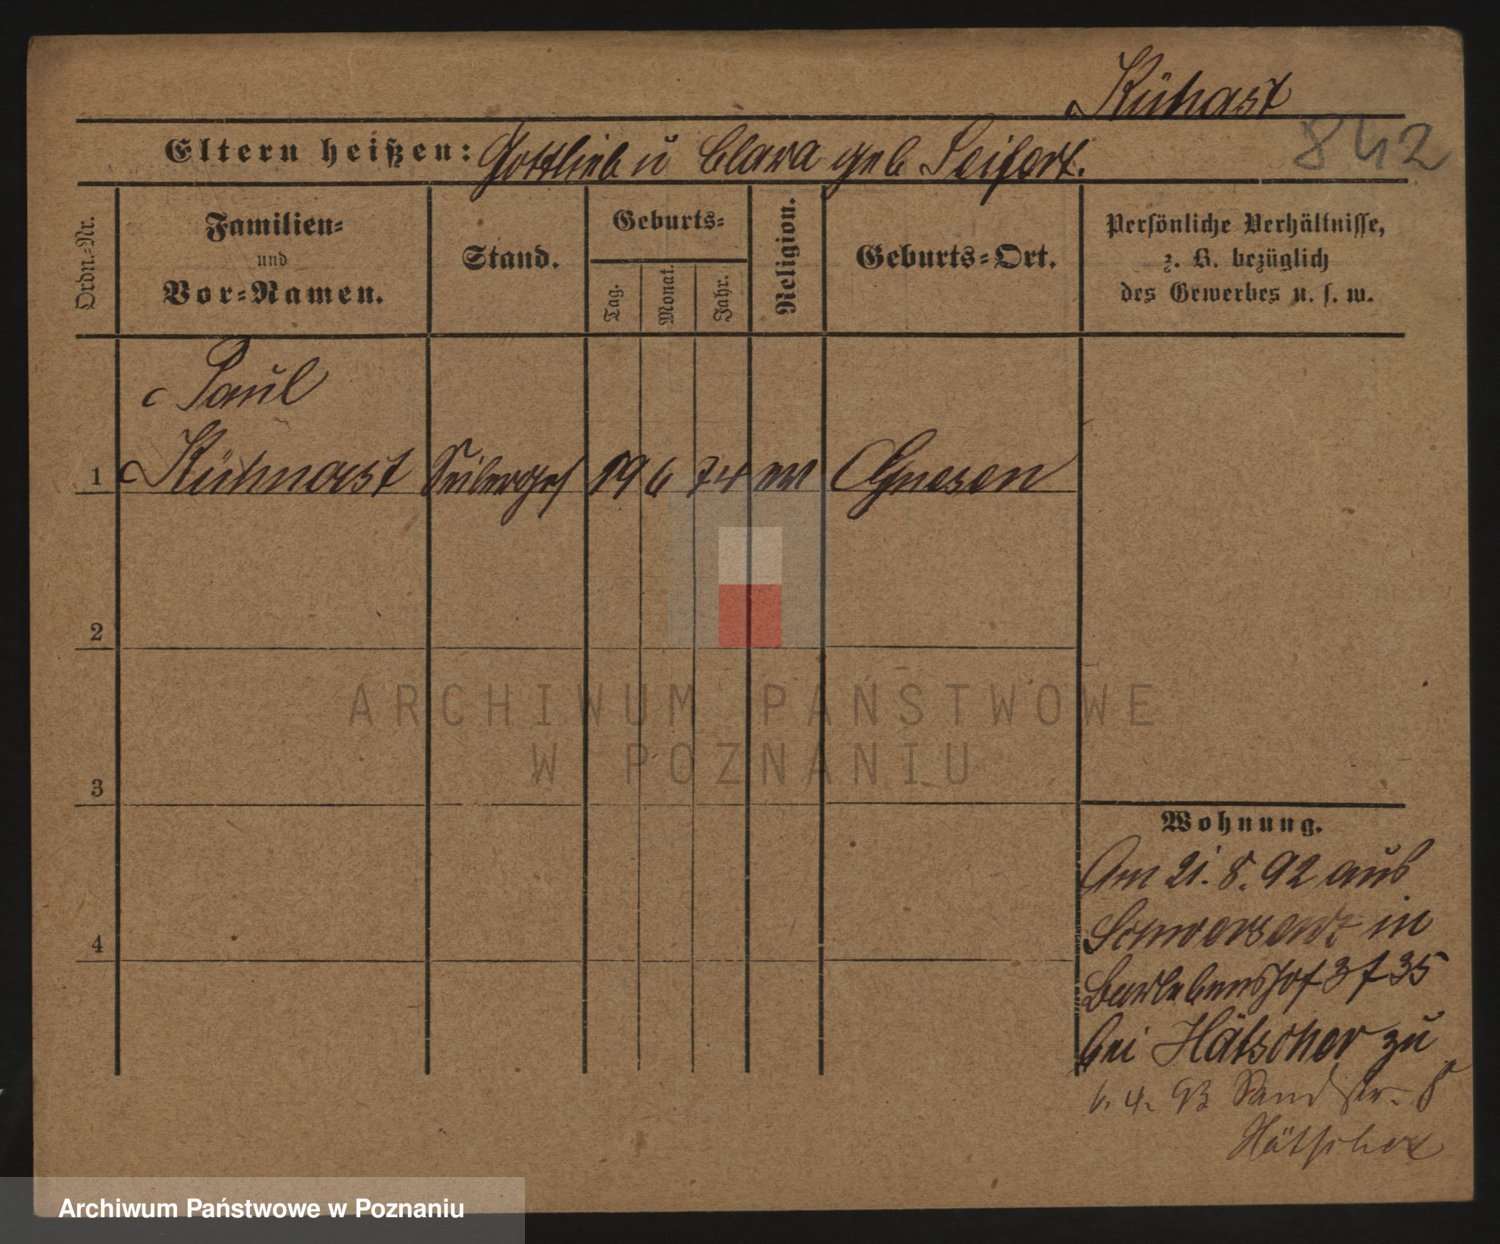 Kühnast
842
Eltern heißen: Gottlieb u Clara geb Seifert.
Ordn.-Nr.
Familien-
und
Vor-Namen.
Stand.
Geburts-
Tag.
Monat.
Jahr.
Religion.
Geburts-Ort.
Persönliche Verhältnisse,
z. B. bezüglich
des Gewerbes u. s. w.
Paul
1 Kühnast Seilerges 19 6 74 ev Gnesen
2
3
4
ARCHIWUM PAŃSTWOWE
W POZNANIU
Wohnung.
Am 21. 8. 92 aus
Schwersenz in
Barlebenshof 3 f 35
bei Hätscher zu
6. 4. 93 Sandstr. 8
Hätscher
Archiwum Państwowe w Poznaniu